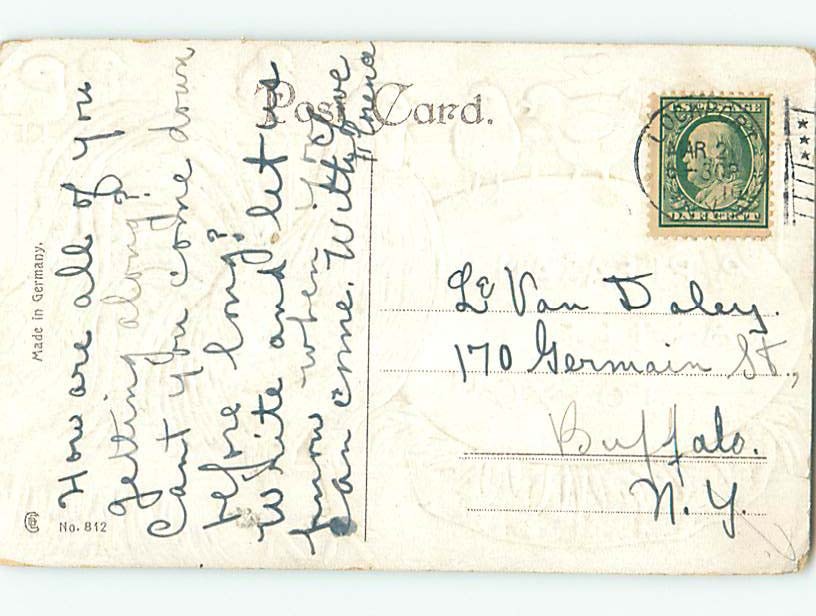 Post Card.
How are all of you
getting along?
Can't you come down
before long?
Write and let us
know when you
can come. With love
Made in Germany.
No. 812
LOCKPORT
U.S. POSTAGE
1 CENT 1
Le Van Daley.
170 Germain St.,
Buffalo.
N.Y.